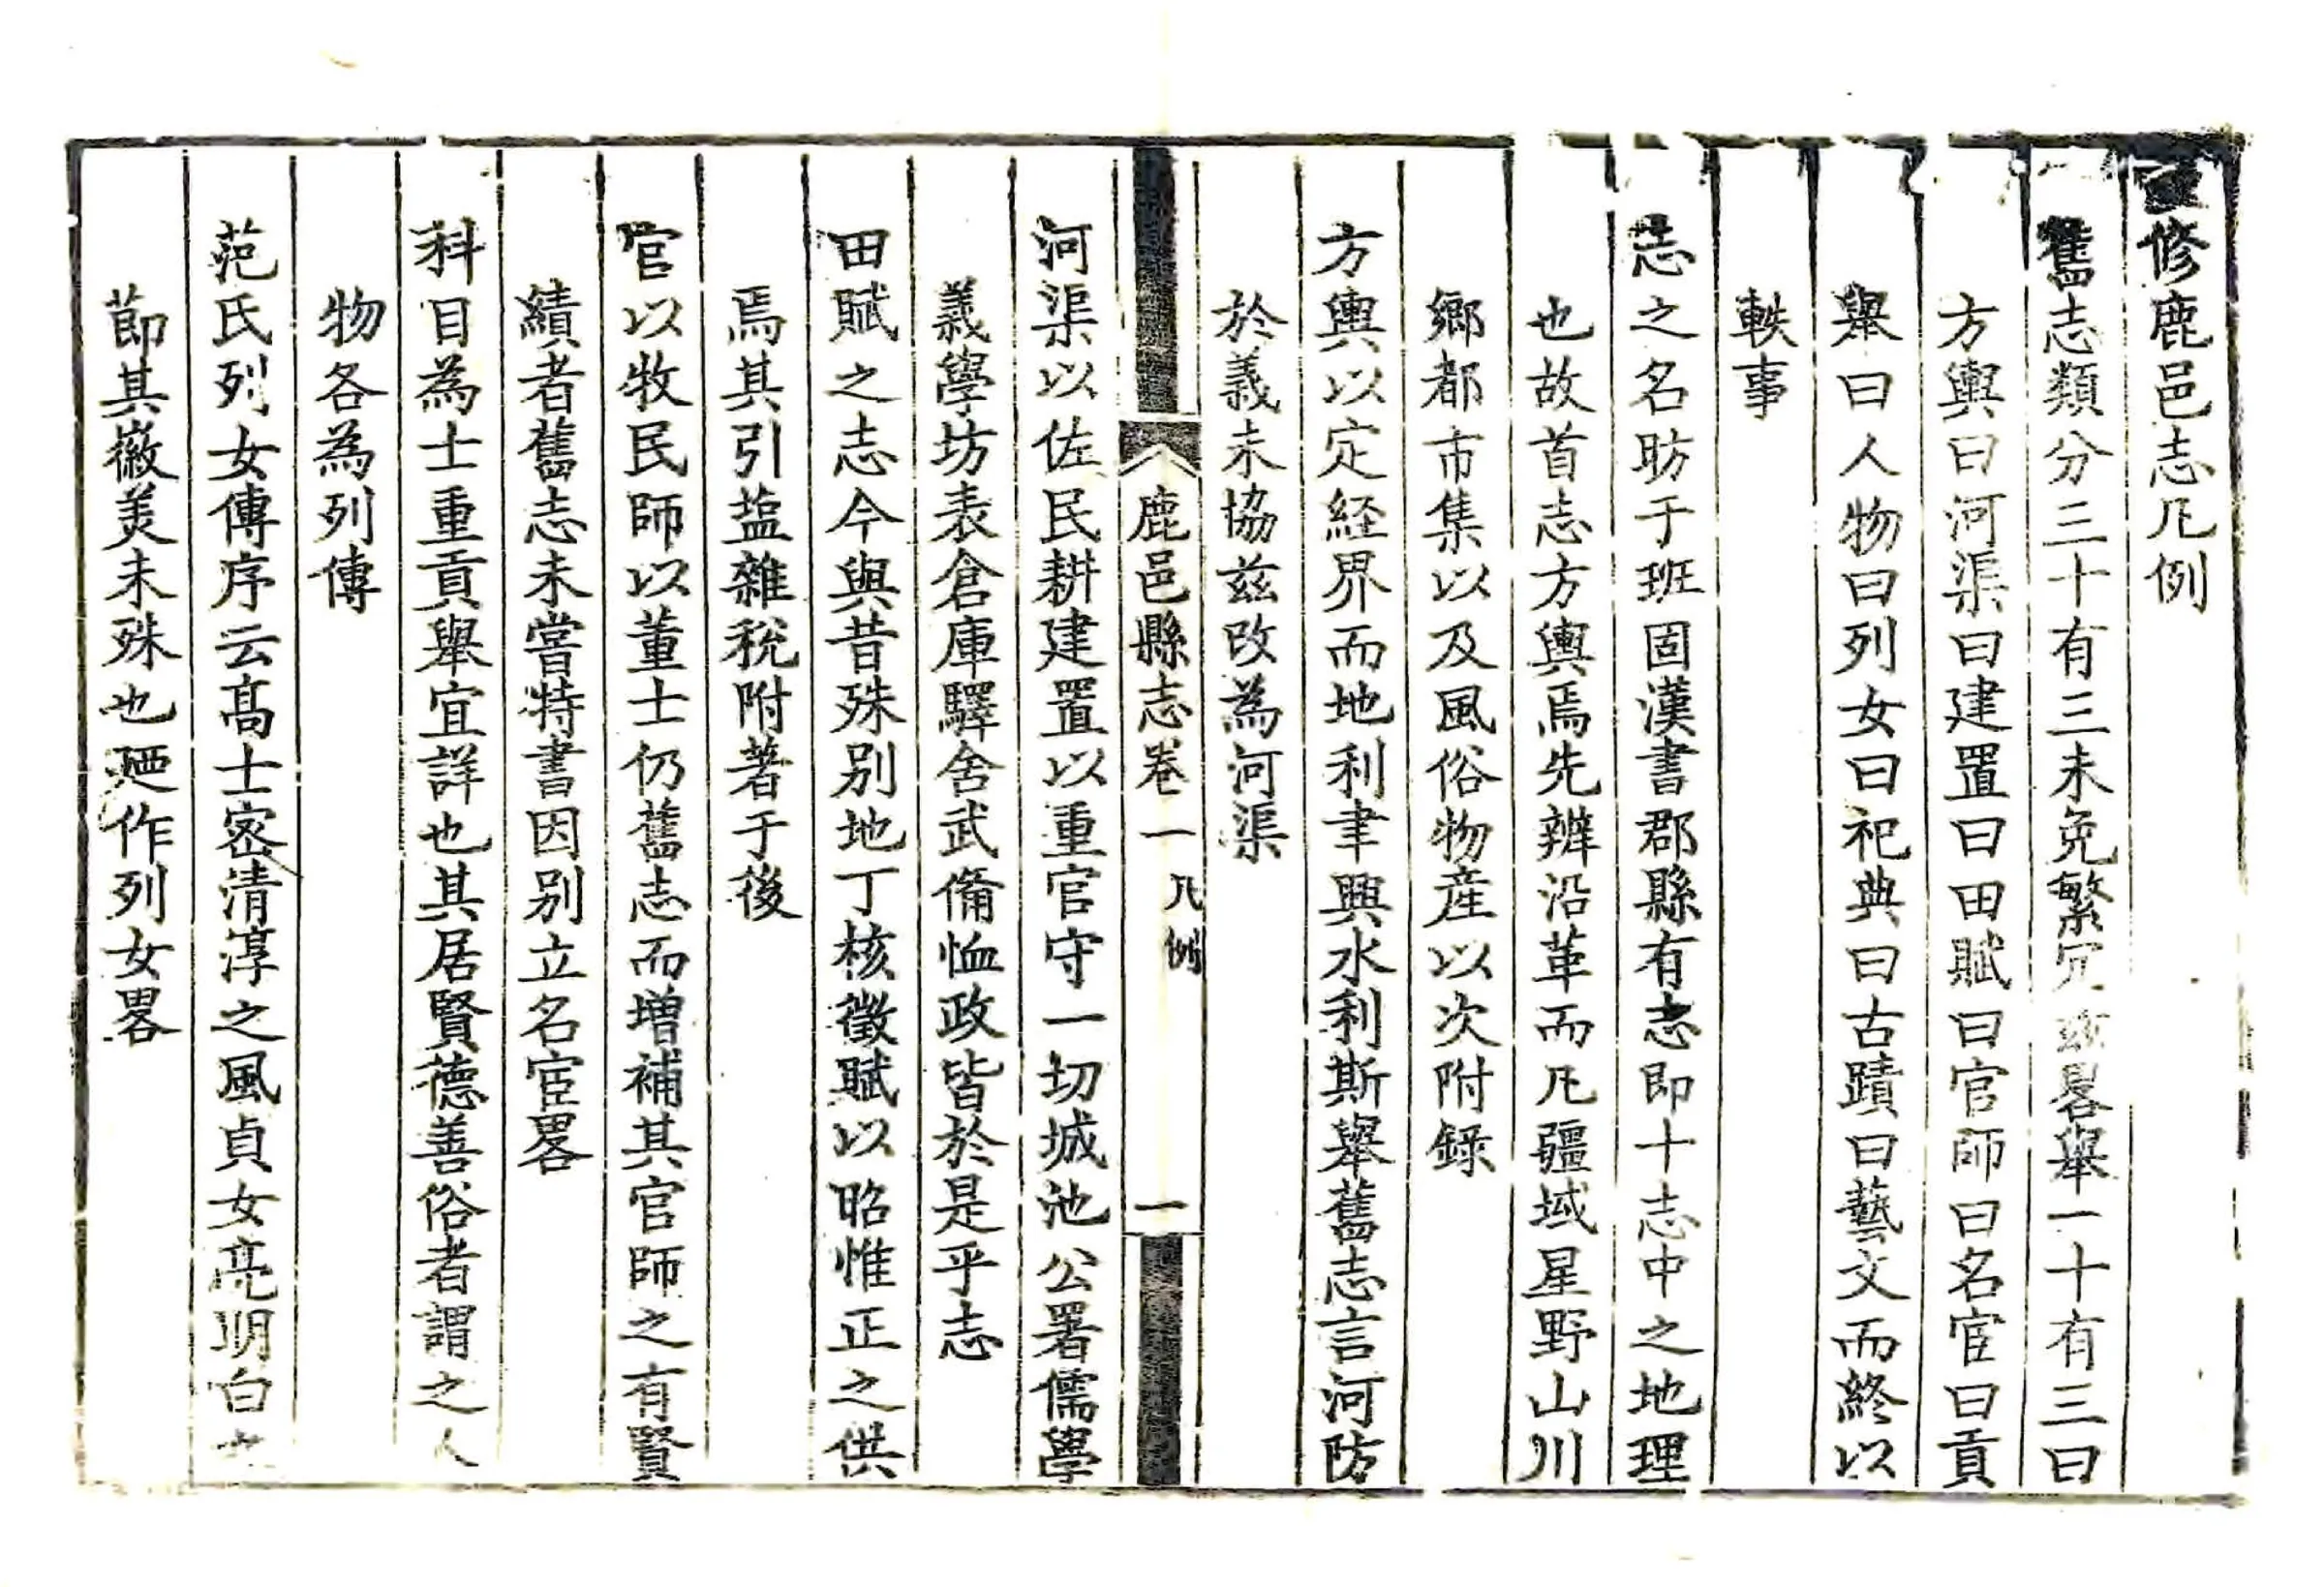 修鹿邑志凡例
舊志類分三十有三未免繁冗茲畧舉一十有三曰
方輿曰河渠曰建置曰田賦曰官師曰名宦曰貢
舉曰人物曰列女曰祀典曰古蹟曰藝文而終以
軼事
志之名昉于班固漢書郡縣有志即十志中之地理
也故首志方輿焉先辨沿革而凡疆域星野山川
鄉都市集以及風俗物産以次附錄
方輿以定経界而地利聿興水利斯舉舊志言河防
於義未協兹改為河渠
鹿邑縣志卷一 凡例 一
河渠以佐民耕建置以重官守一切城池公署儒學
義學坊表倉庫驛舍武俻恤政皆於是乎志
田賦之志今與昔殊别地丁核徵賦以昭惟正之供
焉其引蓝雜稅附著于後
官以牧民師以董士仍舊志而增補其官師之有賢
績者舊志未嘗特書因别立名宦畧
科目為士重貢舉宜詳也其居賢德善俗者謂之人
物各為列傳
范氏列女傳序云髙士宻清淳之風貞女亮明白之
節其徽美未殊也廼作列女畧